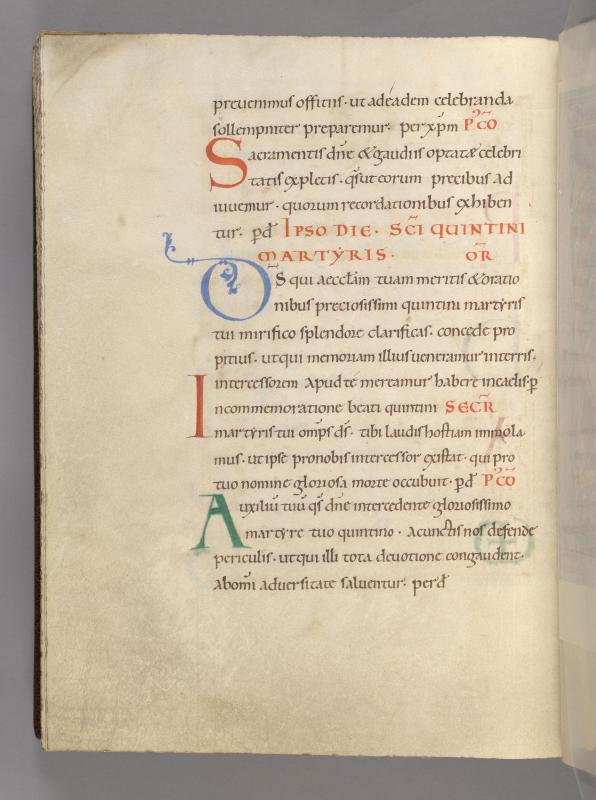 preuenimus offitiis · ut ad eadem celebranda
sollempniter preparemur · per xp̄m P̄ C̄Ō
Sacramentis dn̄e & gaudiis optatæ celebri
tatis expletis · q̄s ut eorum precibus ad
iuuemur · quorum recordationibus exhiben
tur · p̄ d̄ IPSO DIE · SC̄I QUINTINI
MARTẎRIS · OR̄
D̄S qui aeccłam tuam meritis & oratio
nibus preciosissimi quintini martẏris
tui mirifico splendore clarificas · concede pro
pitius · ut qui memoriam illius ueneramur in terris ·
intercessorem apud té mereamur habere in caelis · p̄
In commemoratione beati quintini SECR̄
martẏris tui omp̄s d̄s · tibi laudis hostiam immola
mus · ut ipse pro nobis intercessor existat · qui pro
tuo nomine gloriosa morte occubuit · p̄ d̄ P̄ C̄Ō
Auxiliū tuū q̄s dn̄e intercedente gloriosissimo
martẏre tuo quintino · a cunctis nos defende
periculis · ut qui illi tota deuotione congaudent ·
ab om̄i aduersitate saluentur · per d̄